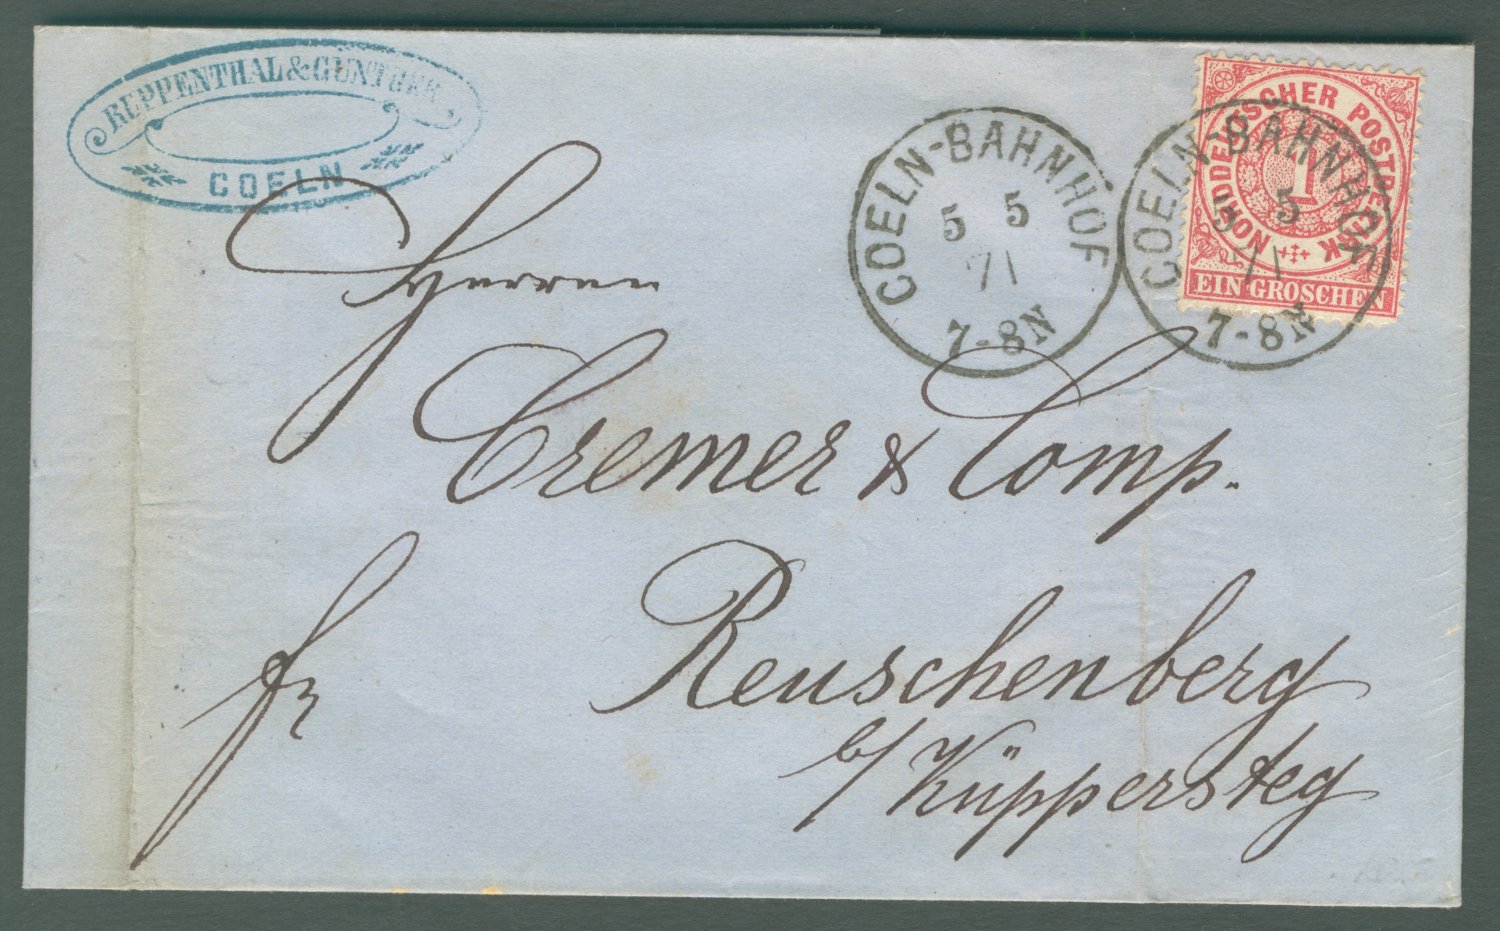 RUPPENTHAL & GÜNTHER
COELN
COELN-BAHNHOF
5 5
71
7-8N
NORDDEUTSCHER POSTBEZIRK
1
EIN GROSCHEN
COELN-BAHNHOF
5 5
71
7-8N
Herren
Cremer & Comp.
fr
Reuschenberg
b/ Küppersteg